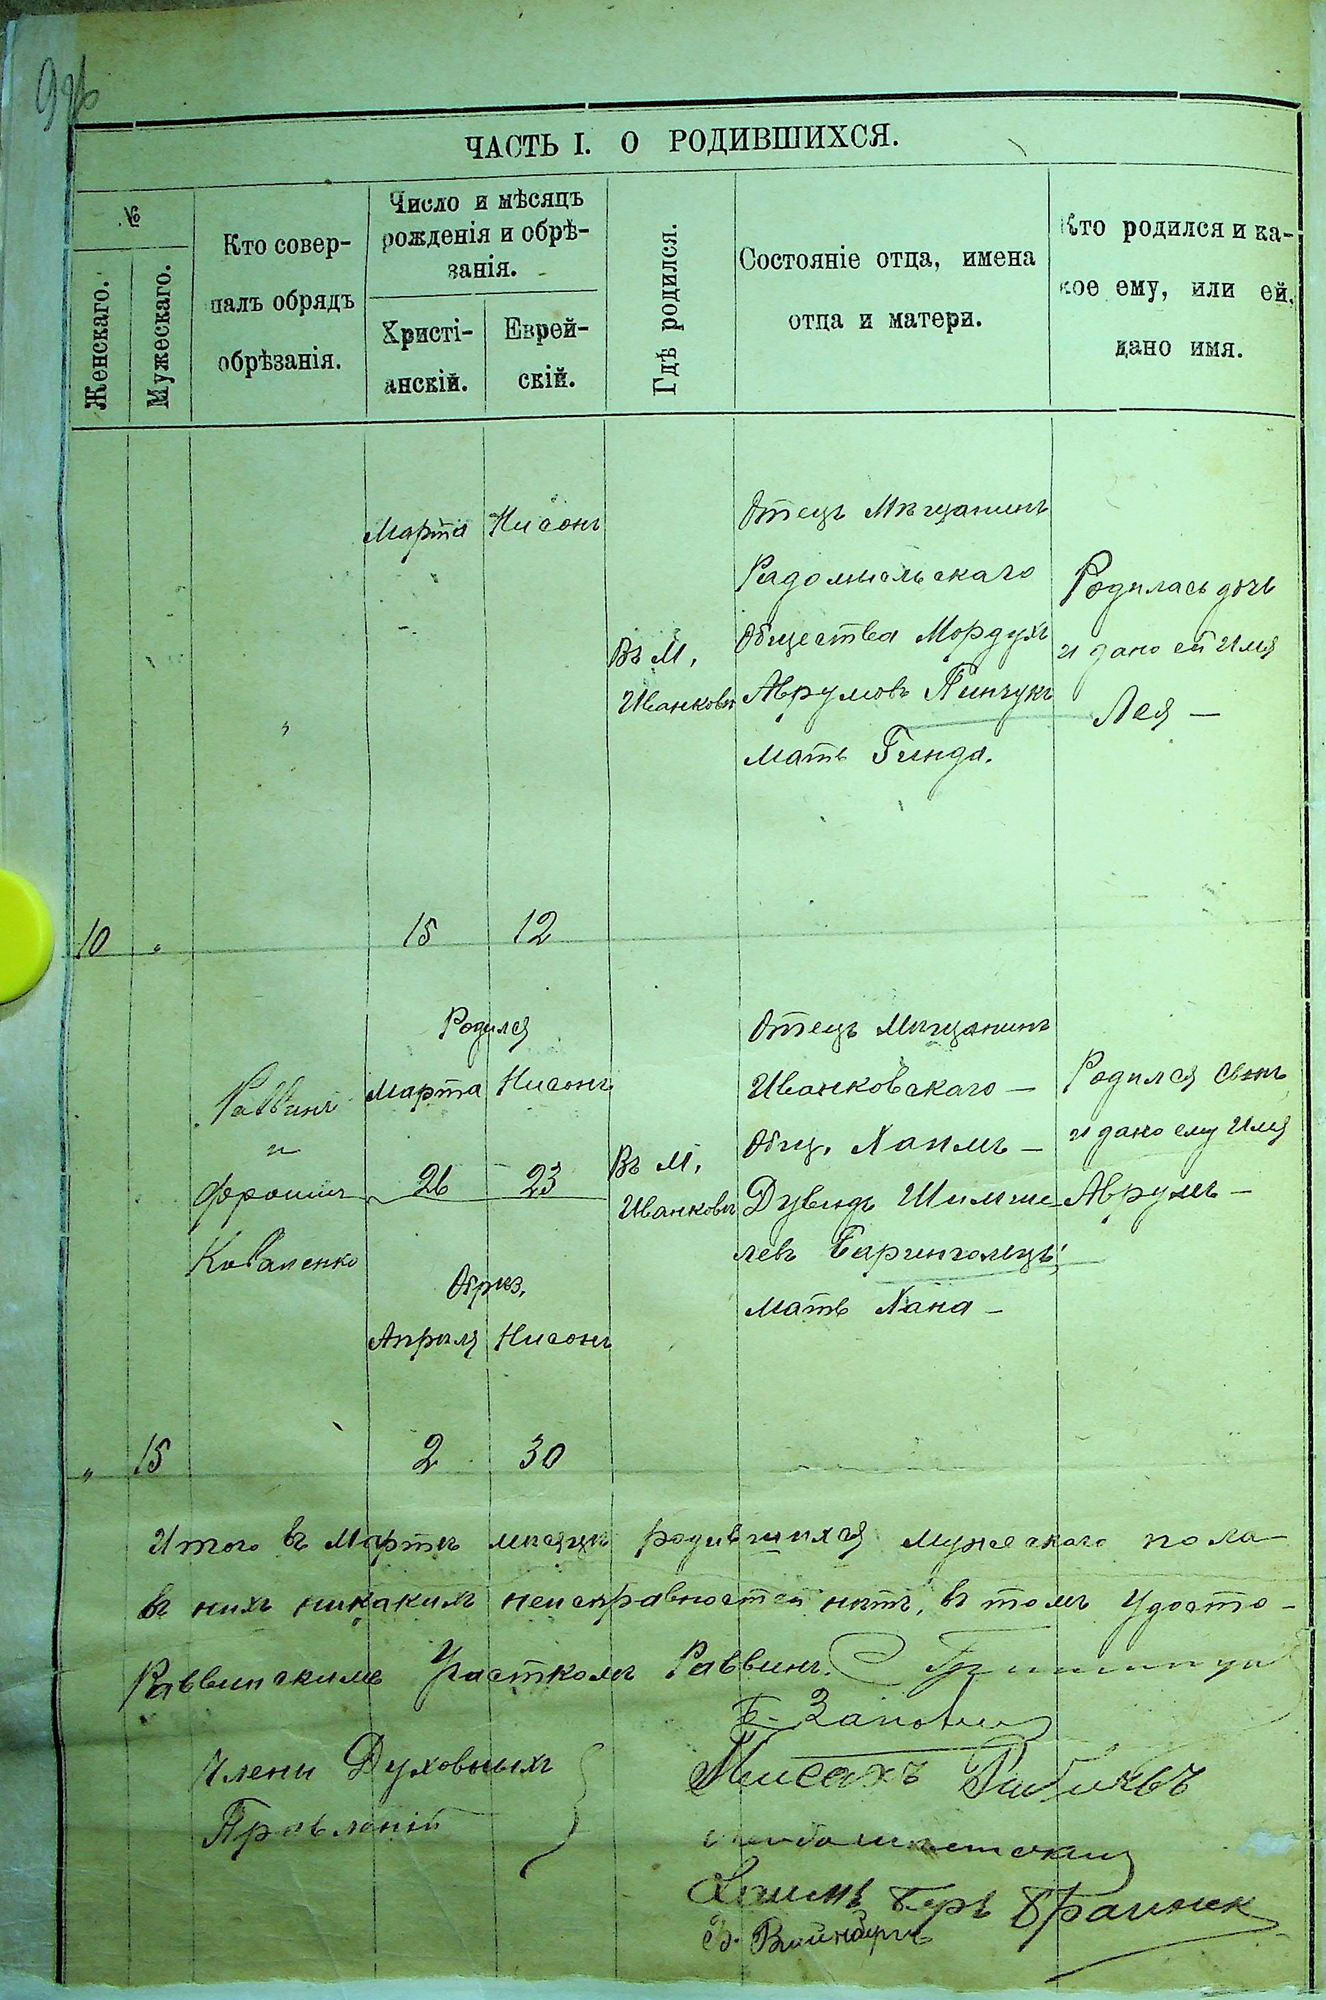 ЧАСТЬ I. О РОДИВШИХСЯ.
№
Женскаго.
Мужескаго.
Кто совер-
шалъ обрядъ
обрѣзанія.
Число и мѣсяцъ
рожденія и обрѣ-
занія.
Христі-
анскій.
Еврей-
скій.
Гдѣ родился.
Состояніе отца, имена
отца и матери.
Кто родился и ка-
кое ему, или ей,
дано имя.
10
"
Марта
15
Нисонъ
12
Въ М.
Иванковѣ
Отецъ Мѣщанинъ
Радомысльскаго
Общества Мордухъ
Аврумовъ Пинчукъ
Мать Гинда.
Родилась дочь
и дано ей Имя
Лея —
"
15
Раввинъ
и
Коваленко
Родился
Марта
26
Нисонъ
23
Обрѣз.
Апрѣля
2
Нисонъ
30
Въ М.
Иванковѣ
Отецъ Мѣщанинъ
Иванковскаго —
Общ. Хаимъ —
Дувидъ Шимше-
левъ
Мать Хана —
Родился сынъ
и дано ему Имя
Аврумъ —
Итого въ Мартѣ мѣсяцѣ родившихся мужескаго пола —
въ нихъ никакимъ неисправностей нѣтъ, въ томъ Удосто-
Раввинскимъ Участкомъ Раввинъ.
Члени Духовныхъ
Правленій
Хаимъ Беръ
В. Вайнбергъ